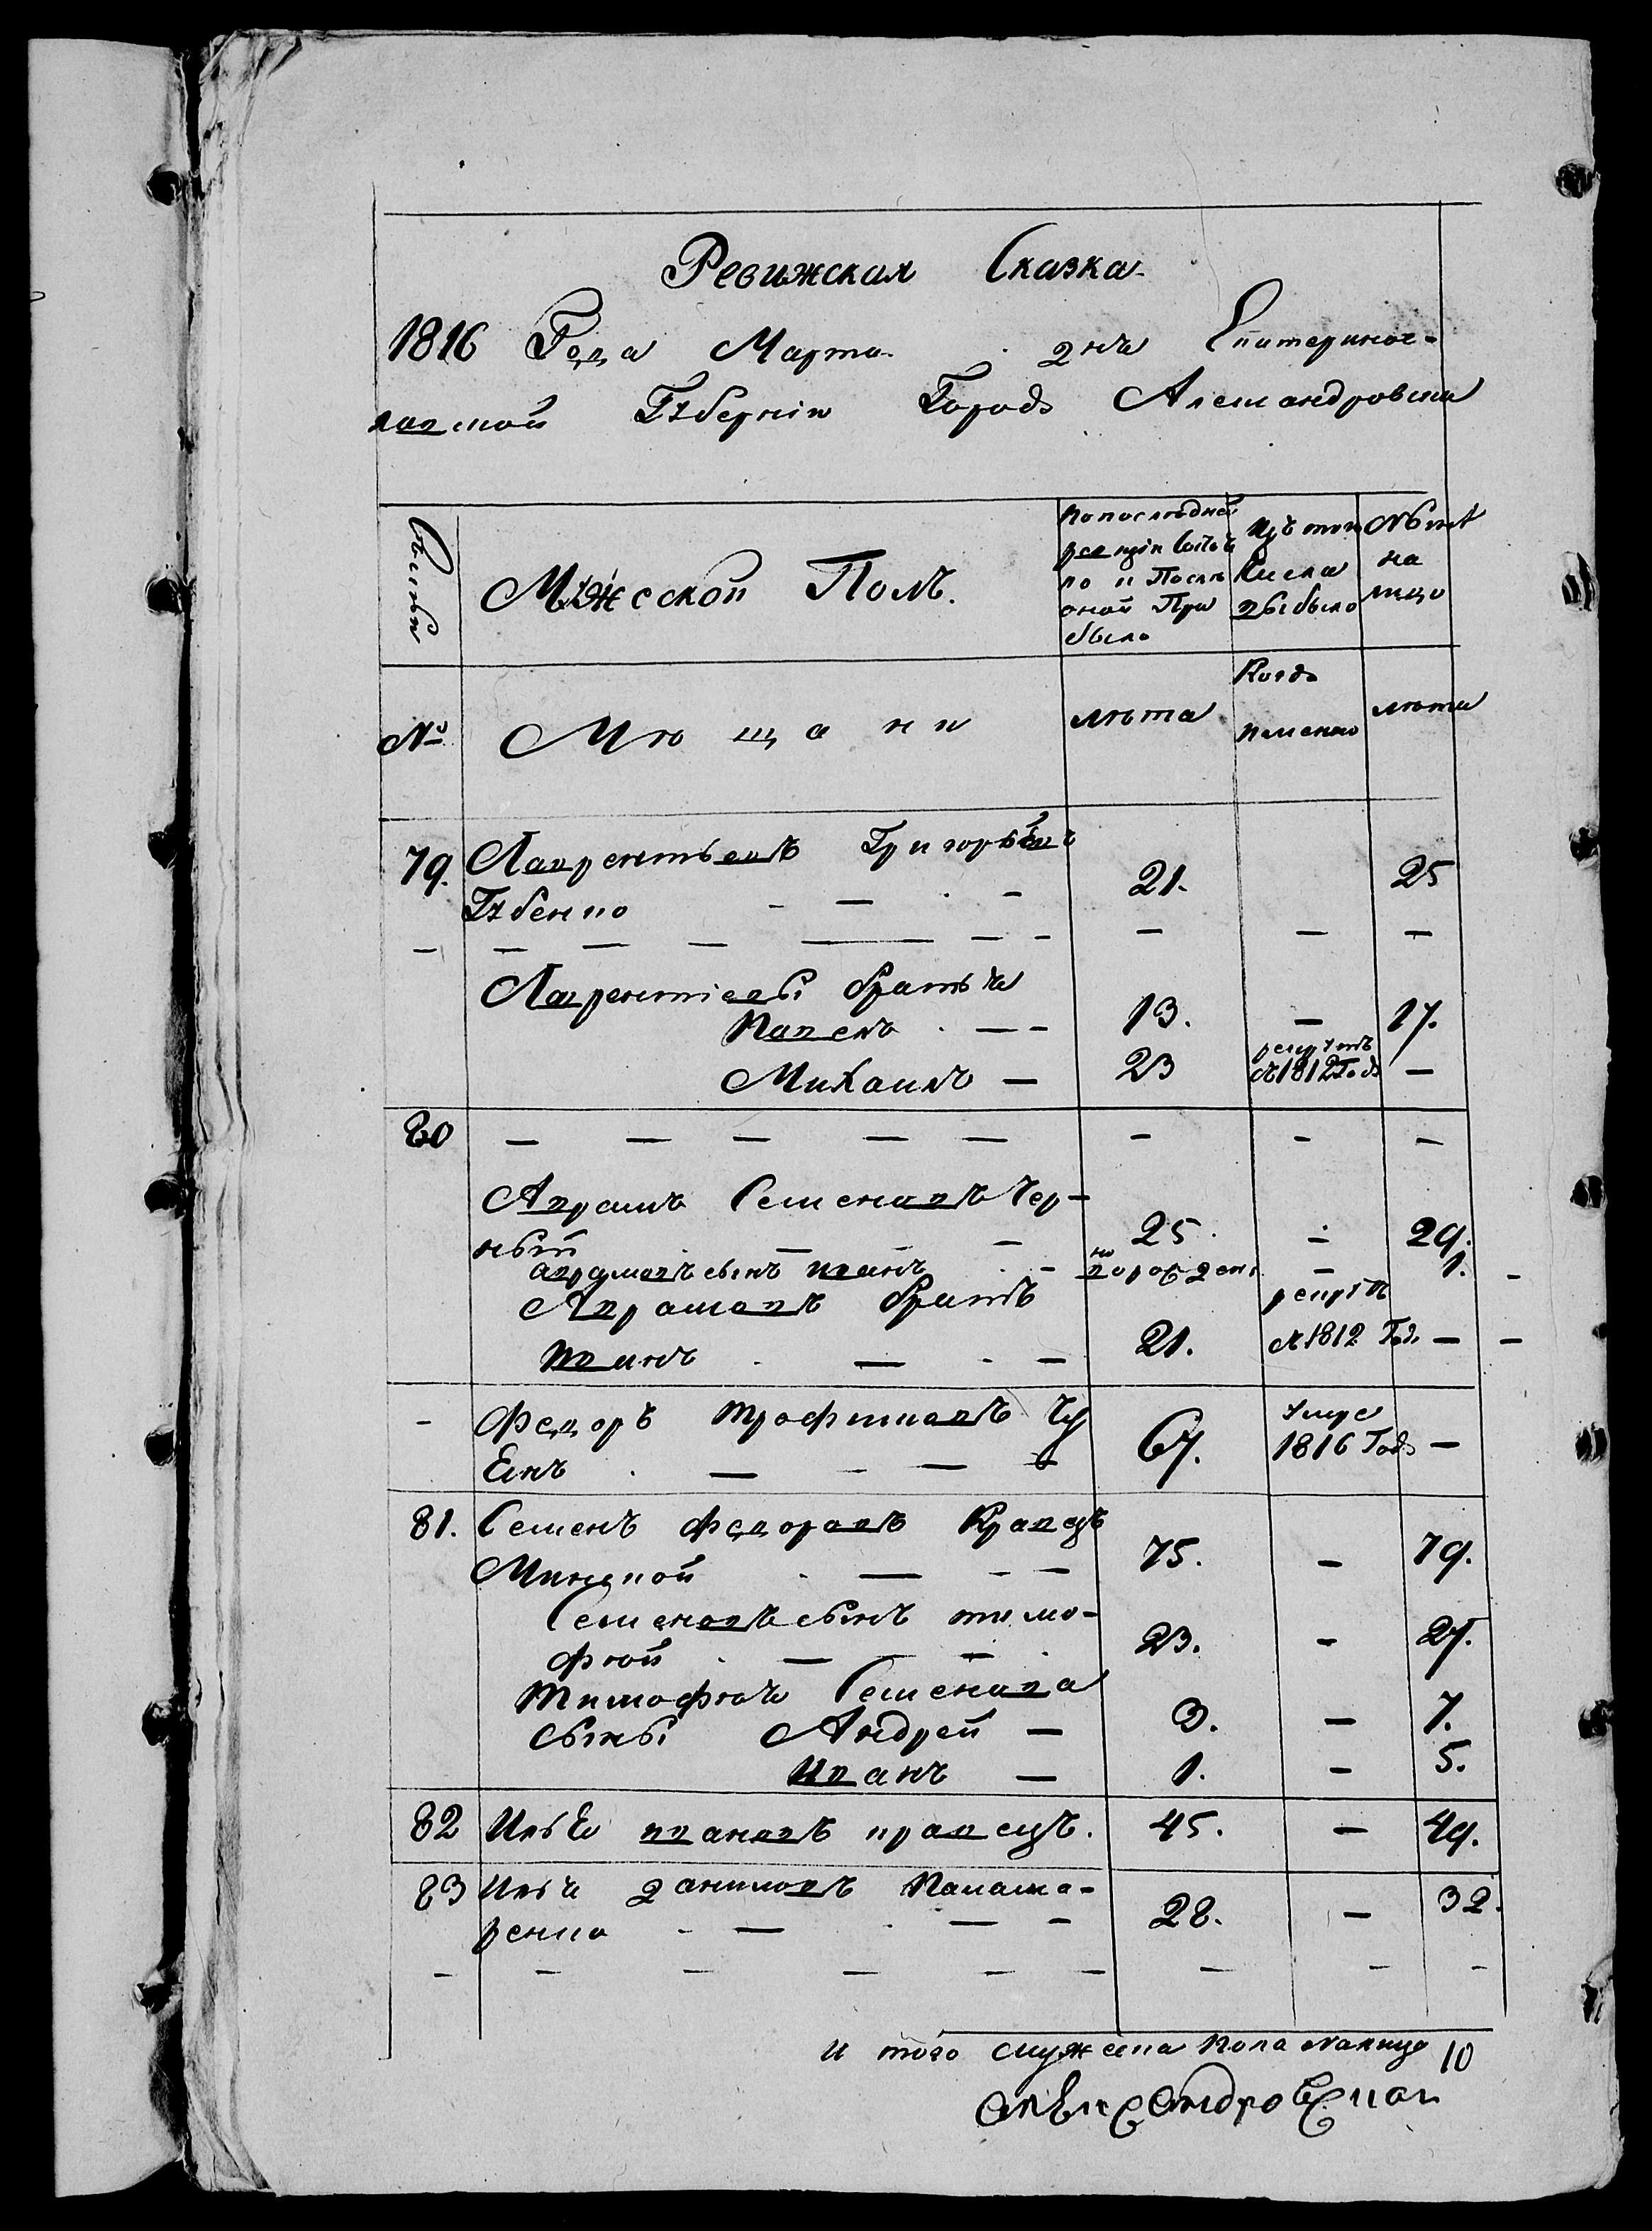 Ревижская Сказка
1816 Года Марта дня Екатеринос-
лавской Губерніи Города Александровска
Семьи
Мужеской Полъ.
По последней ревизіи состояло и После оной Прибыло
Изъ того Числа выбыло
Ныне на лицо
№
Мещане
лѣта
Когда именно
лѣта
79. Лаврентьевъ Григорьевъ
Губенко - — . - 21. 25
— — — — — — - — — —
Лаврентіевы братья
Павелъ . — - 13. — 17.
Михаилъ — 23 рекрутъ въ 1812 Годе —
80 — — — — — - - —
Аврамъ Семеновъ Чер-
ный . — - — 25. - 29.
аврамовъ сынъ иванъ . - но ворожденъ — 1. -
Аврамовъ братъ
иванъ . — . — 21. рекрутъ въ 1812 Годе — —
- Федоръ трофимовъ Чу
Енъ . — - — 67. умре 1816 Годе —
81. Семенъ федоровъ Кравецъ
Минской . — - — 75. — 79.
Семеновъ сынъ тимо-
фей . — — . 23. - 27.
тимофея Семенова
сыны Андрей — 3. — 7.
Иванъ — 1. - 5.
82 Илья ивановъ кравецъ. 45. — 49.
83 Илья даниловъ Паламо-
ренко - — . — - 28. — 32.
- - - — - — — - -
И того мужеска Пола Налицо 10
Александровской